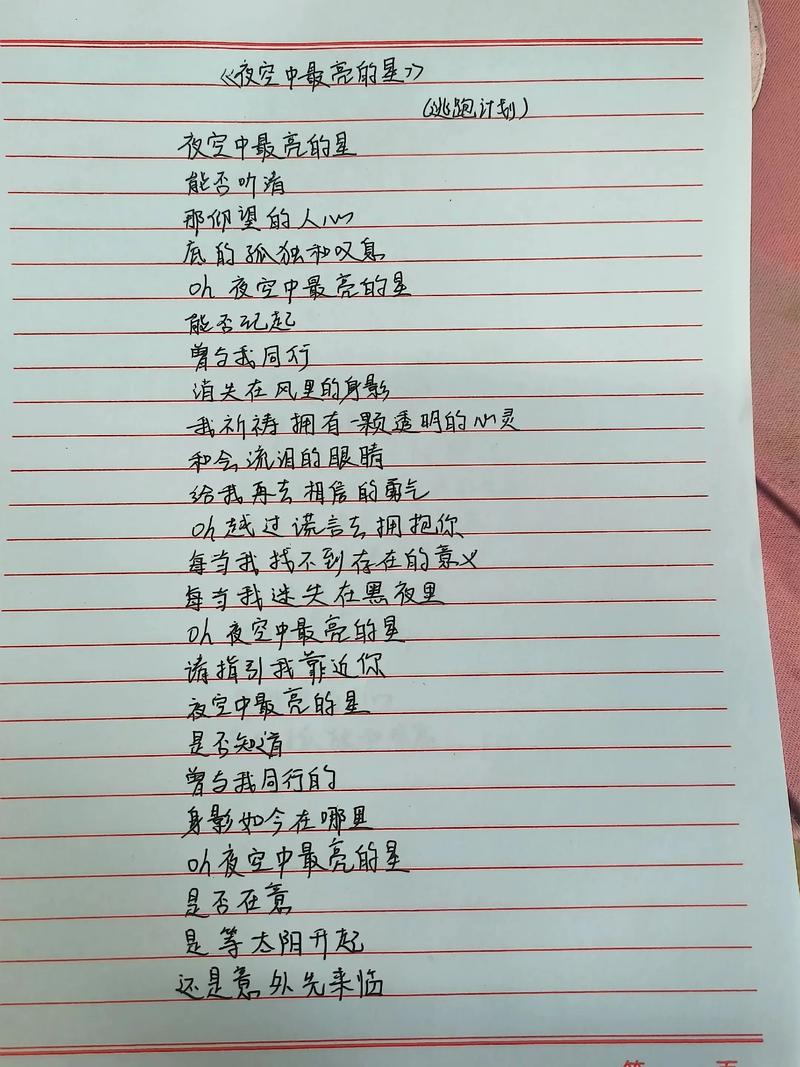 《夜空中最亮的星》
(逃跑计划)
夜空中最亮的星
能否听清
那仰望的人心
底的孤独和叹息
Oh 夜空中最亮的星
能否记起
曾与我同行
消失在风里的身影
我祈祷拥有一颗透明的心灵
和会流泪的眼睛
给我再去相信的勇气
Oh 越过谎言去拥抱你
每当我找不到存在的意义
每当我迷失在黑夜里
Oh 夜空中最亮的星
请指引我靠近你
夜空中最亮的星
是否知道
曾与我同行的
身影如今在哪里
Oh 夜空中最亮的星
是否在意
是等太阳升起
还是意外先来临